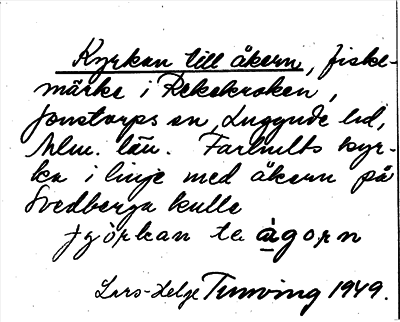 Kyrkan till åkern, fiske-
märke i Rekekroken,
Jonstorps sn, Luggude hd,
Mlm. län. Farhults kyr-
ka i linje med åkern på
Svedberga kulle
jgörkan te ågorn
Lars-Helge Tunving 1949.